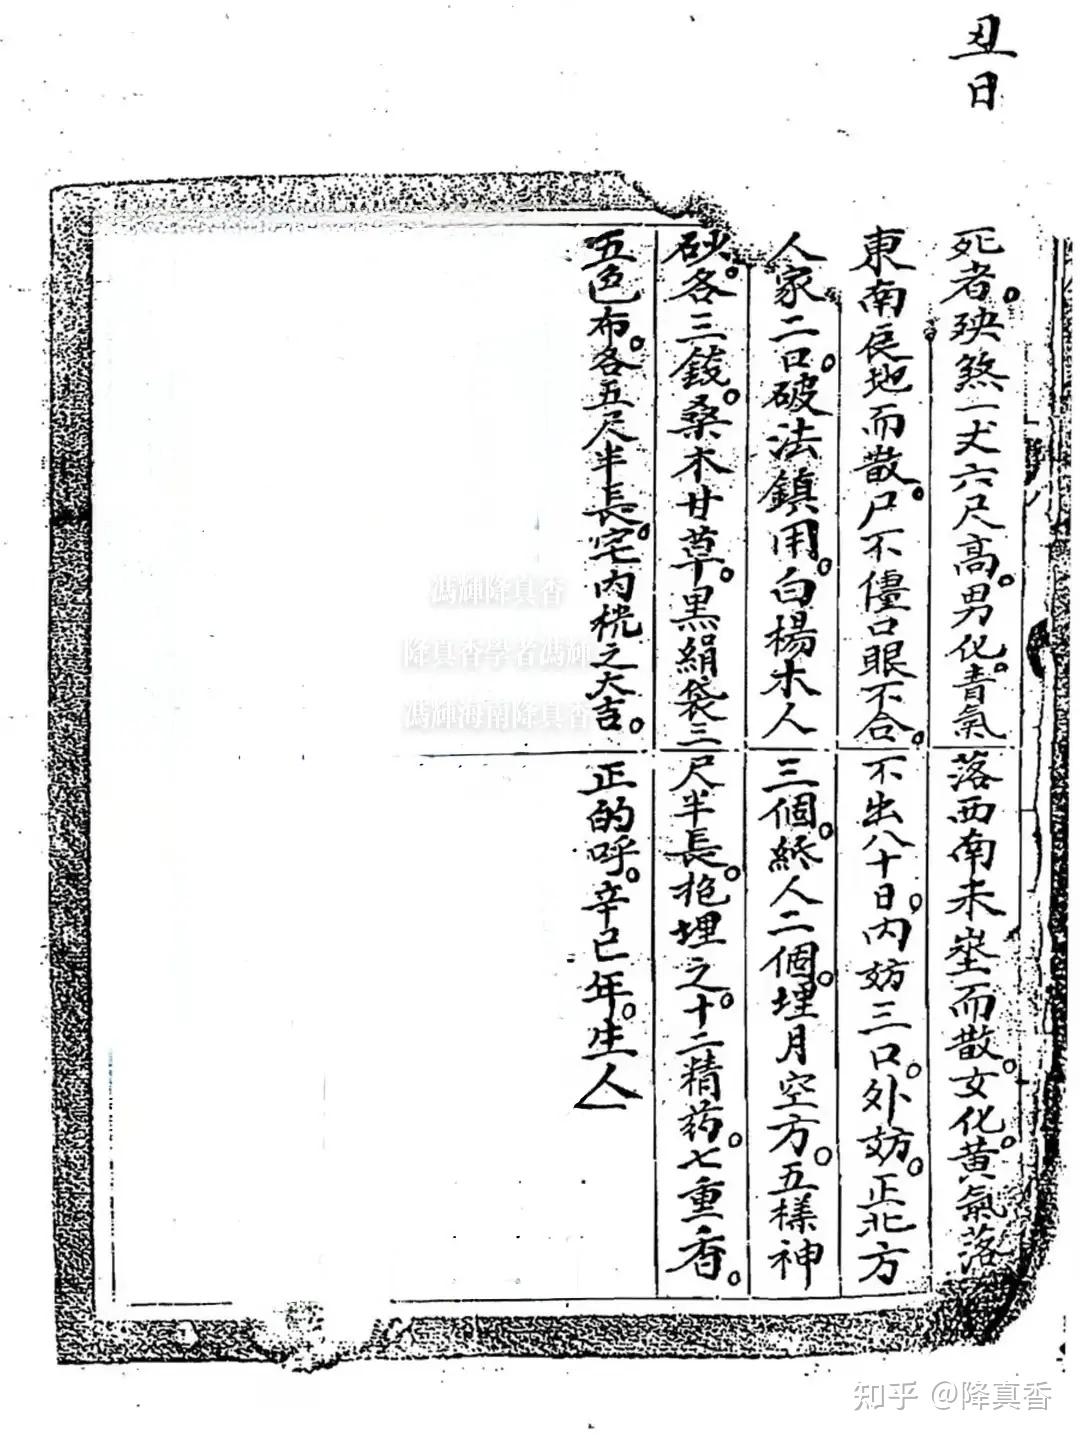 丑日
死者。殃煞一丈六尺高。男化。青氣落西南未堂而散。女化。黃氣落
東南辰地而散。尸不僵口眼不合。不出八十日。內妨三口。外妨。正北方
人家二口。破法鎮用。白楊木人三個。紙人二個。埋月空方。五樣神
砂。各三錢。桑木甘草。黑絹袋三尺半長。抱埋之。十二精药。七重香。
五色布。各五尺半長。宅內 之大吉。正的呼。辛巳年。生人
馮輝降真香
降真香學者馮輝
馮輝海南降真香
知乎 @降真香